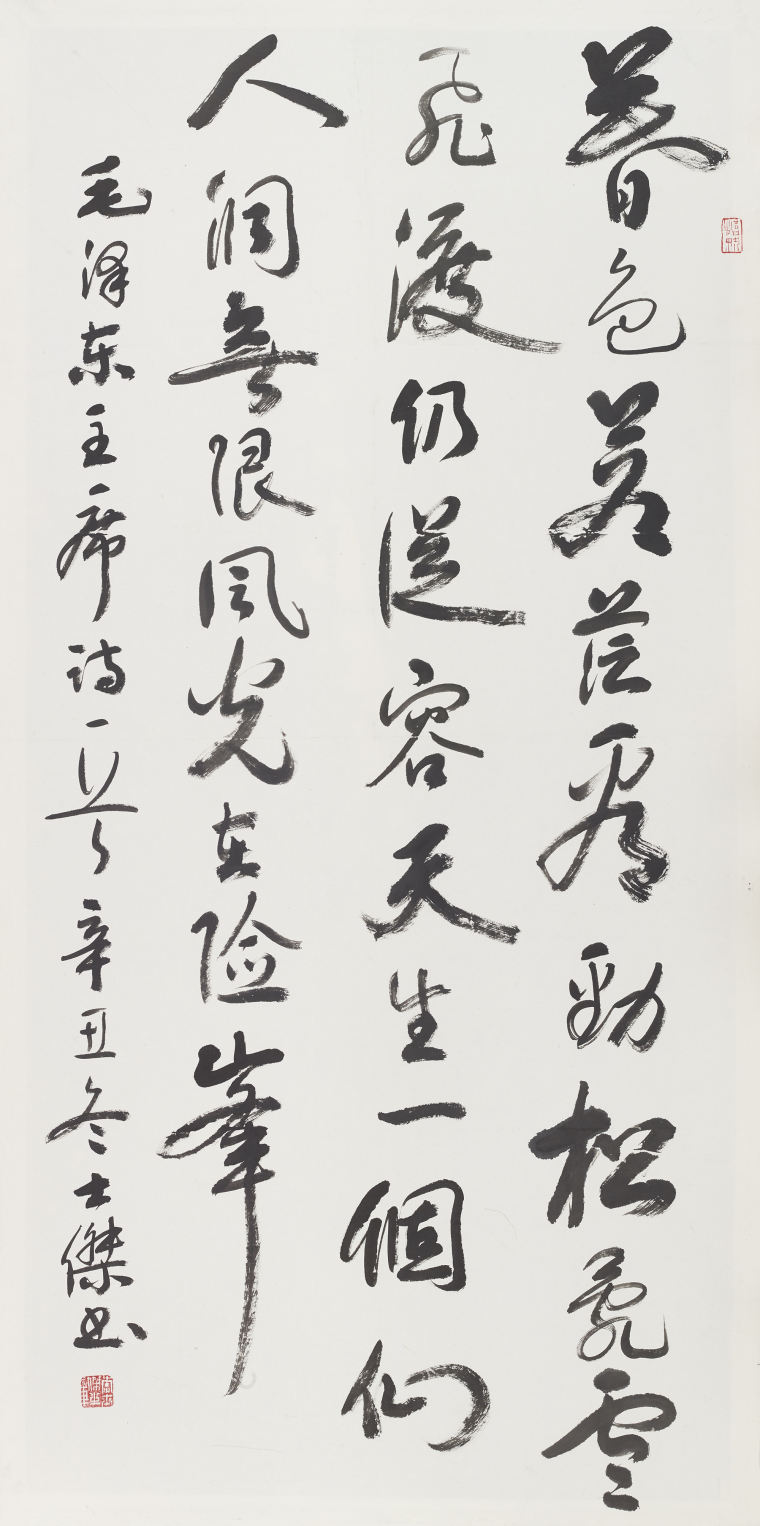 暮色蒼茫看勁松亂雲
飛渡仍從容天生一個仙
人洞無限風光在險峯
毛泽东主席诗一首辛丑冬士傑书